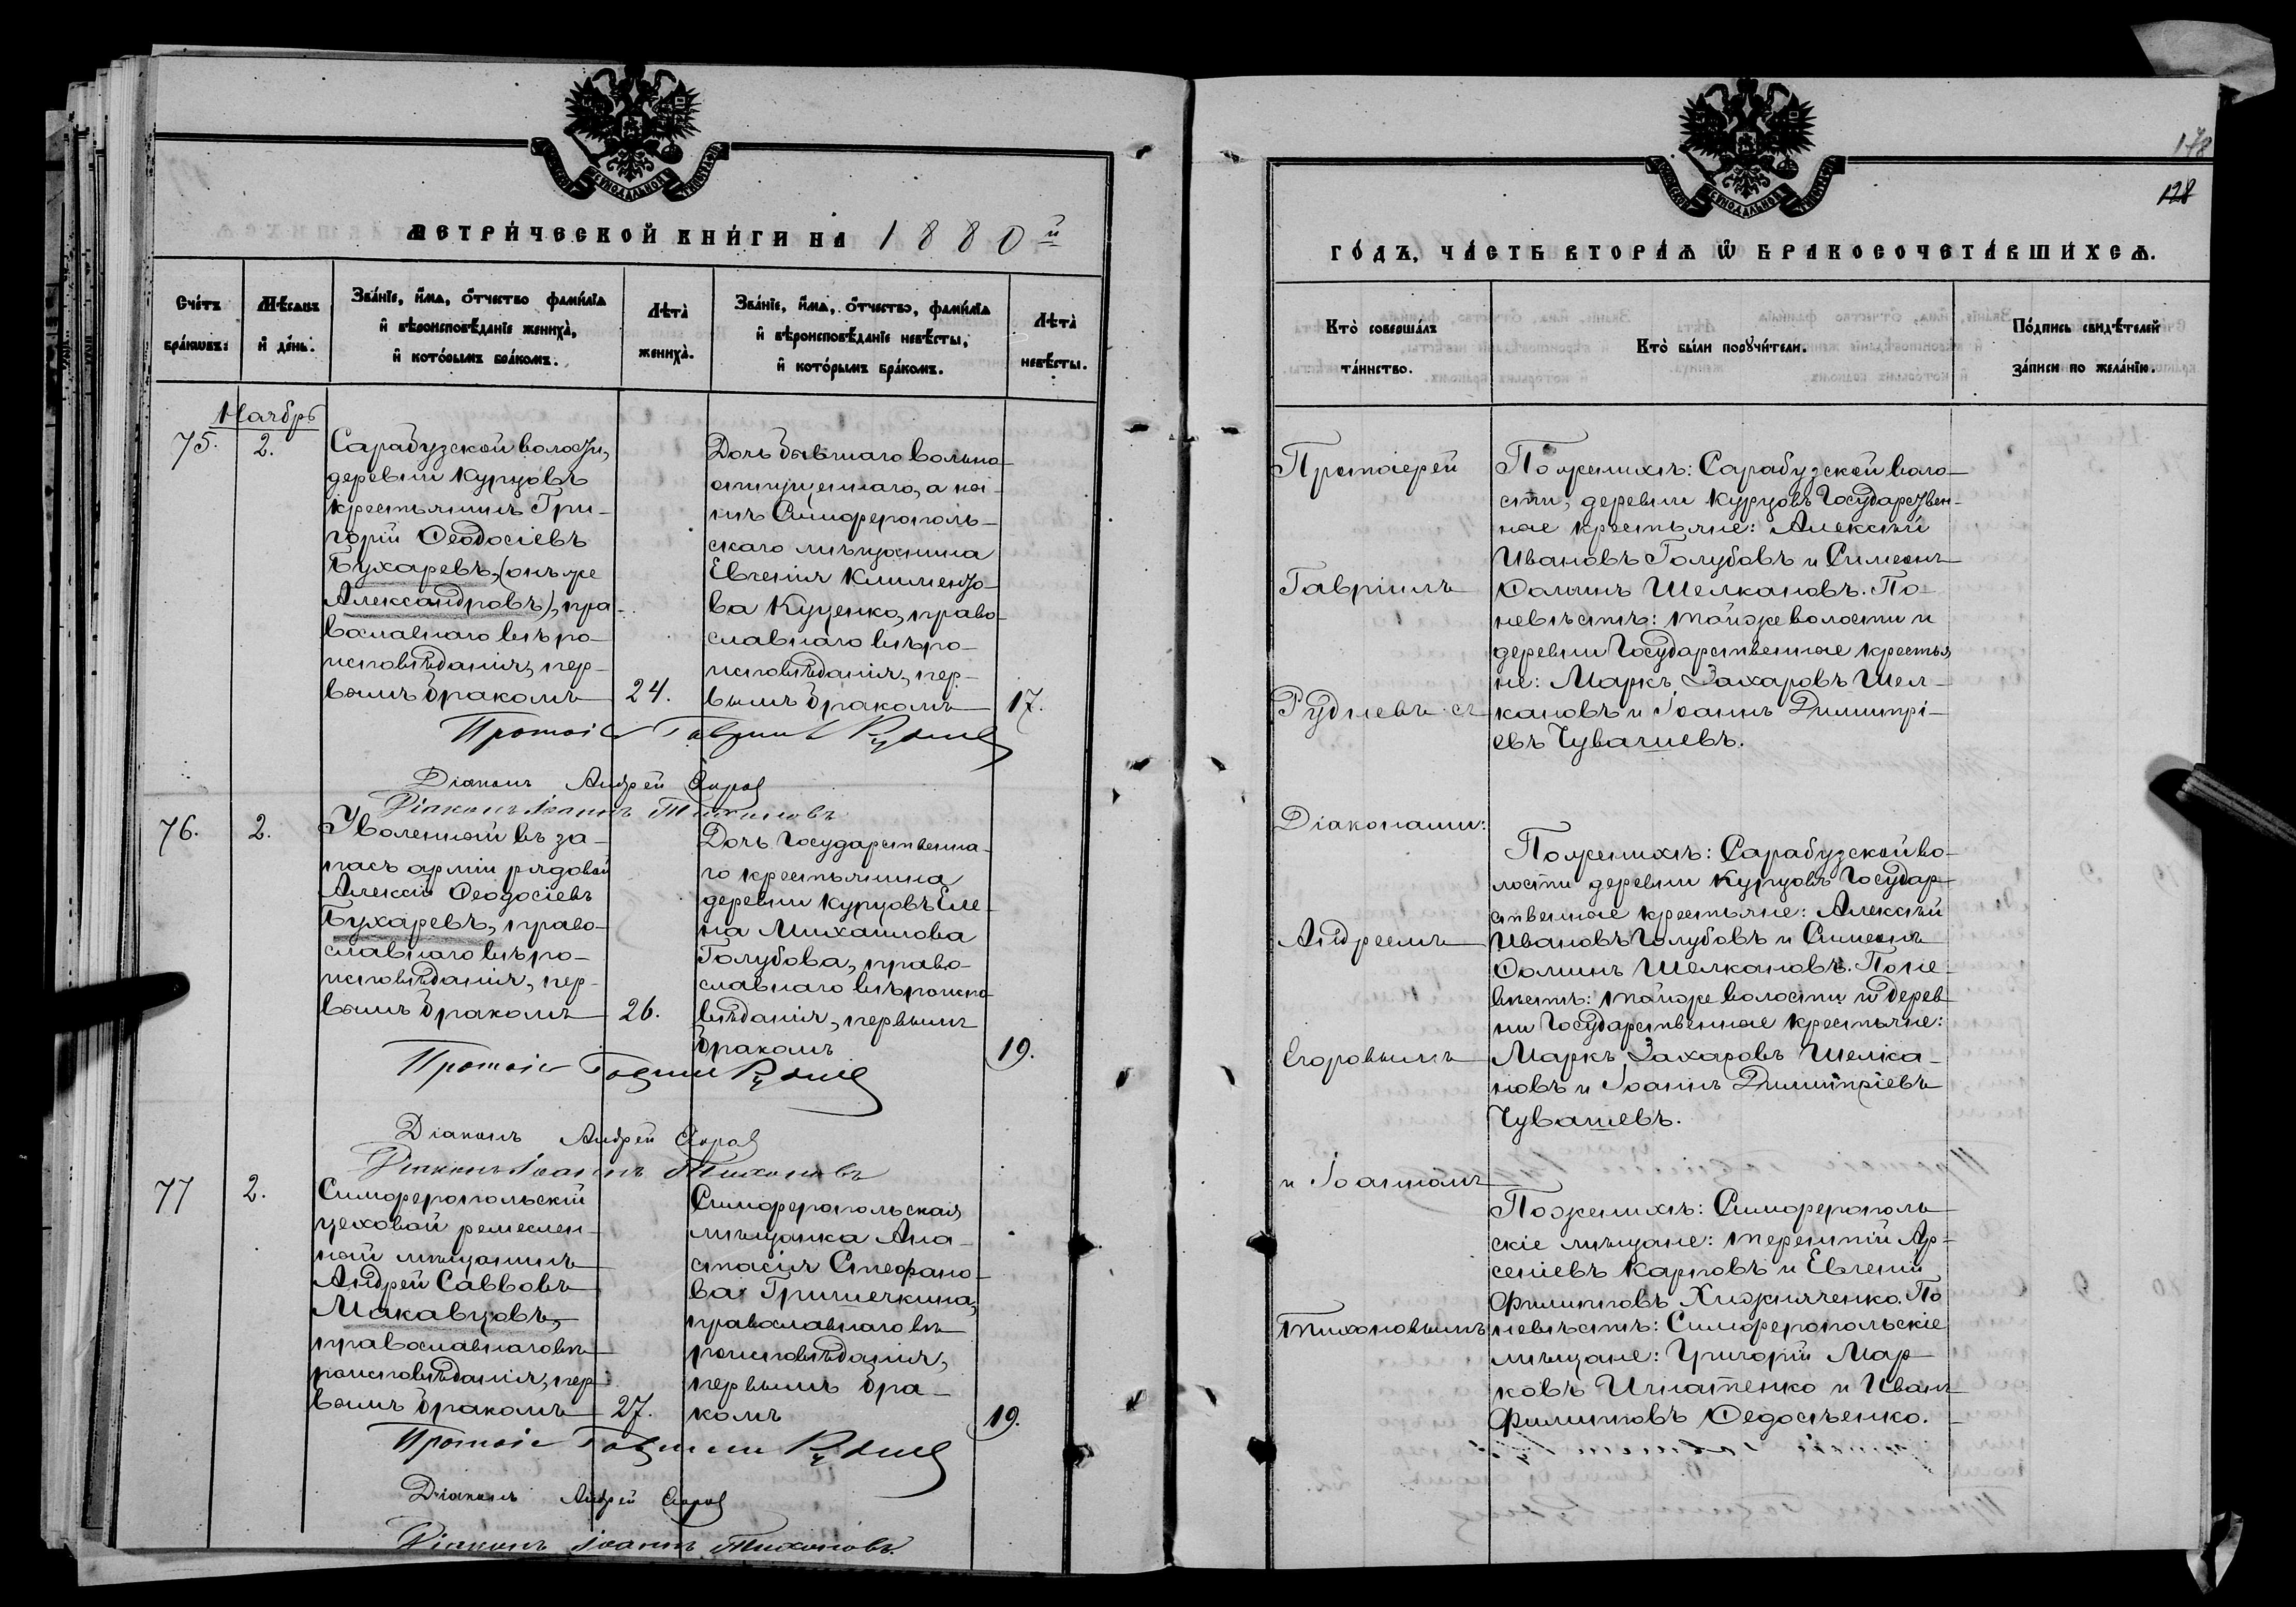 МЕТРИ́ЧЕСКОЙ КНИ́ГИ НА 1880й
Сче́тъ бра́ковъ:
Мѣ́сяцъ и де́нь.
Зва́нїе, и́мя, о́тчество фами́лїя и вѣроисповѣ́данїе жениха̀, и кото́рымъ бра́комъ.
Лѣта̀ жениха̀.
Зва́нїе, и́мя, о́тчество, фами́лїя и вѣроисповѣ́данїе невѣ́сты, и кото́рымъ бра́комъ.
Лѣта̀ невѣ́сты.
Ноябрь
75.
2.
Сарабузской волости,
деревни Курцовъ
крестьянинъ Гри-
горій Ѳеодосіевъ
Бухаревъ, (онъ же
Александровъ), пра-
вославнаго вѣро-
исповѣданія, пер-
вымъ бракомъ
24.
Дочь бывшаго вольно-
отпущеннаго, а ны-
нѣ Симферополь-
скаго мѣщанина
Евгенія Клименто-
ва Куценко, право-
славнаго вѣро-
исповѣданія, пер-
вымъ бракомъ
17.
Діаконъ Андрей
Діаконъ Іоаннъ Тихоновъ
76.
2.
Уволенный въ за-
пасъ арміи рядовой
Алексій Ѳеодосіевъ
Бухаревъ, право-
славнаго вѣро-
исповѣданія, пер-
вымъ бракомъ
26.
Дочь Государственна-
го крестьянина
деревни Курцовъ Еле-
на Михаилова
Голубова, право-
славнаго вѣроиспо-
вѣданія, первымъ
бракомъ
19.
Діаконъ Андрей
Діаконъ Іоаннъ Тихоновъ
77
2.
Симферопольскій
цеховой ремеслен-
ный мѣщанинъ
Андрей Саввовъ
Макавцовъ,
православнаго вѣ-
роисповѣданія, пер-
вымъ бракомъ
27.
Симферопольская
мѣщанка Ана-
стасія Стефано-
ва Гришечкина,
православнаго вѣ-
роисповѣданія,
первымъ бра-
комъ
19.
Діаконъ Андрей
Діаконъ Іоаннъ Тихоновъ.
178
128
ГО́ДЪ, ЧА́СТЬ ВТОРА́Я Ѿ БРАКОСОЧЕТА́ВШИХСЯ.
Кто̀ соверша́лъ та́инство.
Кто̀ бы́ли поручи́тели.
По́дпись свидѣ́телей за́писи по жела́нїю.
Протоіерей
Гавріилъ
Рудневъ съ
Діаконами:
Андреемъ
Егоровымъ
и Іоанномъ
Тихоновымъ
По женихѣ: Сарабузской воло-
сти, деревни Курцовъ Государствен-
ные крестьяне: Алексѣй
Ивановъ Голубовъ и Симеонъ
Ѳоминъ Шелкановъ. По
невѣстѣ: той же волости и
деревни Государственные крестья
не: Маркъ Захаровъ Шел-
кановъ и Іоаннъ Димитрі-
евъ Чувашевъ.
По женихѣ: Сарабузской во-
лости деревни Курцовъ Государ-
ственные крестьяне: Алексѣй
Ивановъ Голубовъ и Симеонъ
Ѳоминъ Шелкановъ. По не-
вѣстѣ: той же волости и дерев
ни Государственные крестьяне:
Маркъ Захаровъ Шелка-
новъ и Іоаннъ Димитріевъ
Чувашевъ.
По женихѣ: Симферополь
скіе мѣщане: Терентій Ар-
сеніевъ Карповъ и Евгеній
Филипповъ Хижняченко. По
невѣстѣ: Симферопольскіе
мѣщане: Григорій Мар-
ковъ Игнатенко и Иванъ
Филипповъ Ѳедосѣенко.